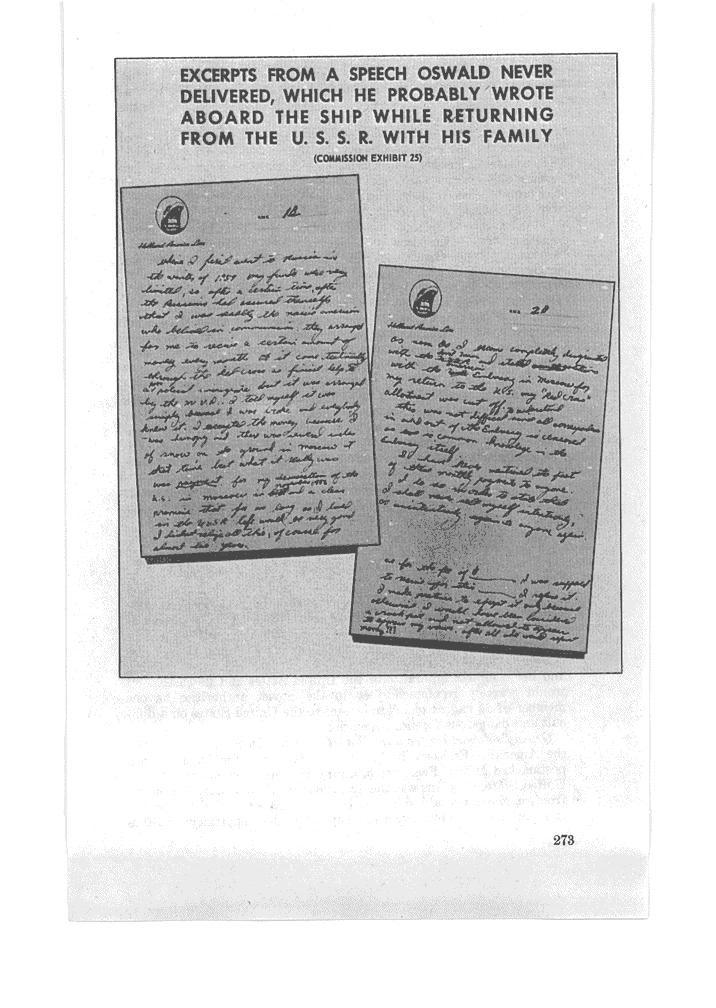 EXCERPTS FROM A SPEECH OSWALD NEVER
DELIVERED, WHICH HE PROBABLY WROTE
ABOARD THE SHIP WHILE RETURNING
FROM THE U. S. S. R. WITH HIS FAMILY
(COMMISSION EXHIBIT 25)
1A
Holland America Line
when I first went to Russia in
the winter of 1959 my funds were very
limited, so after a certain time, after
the Russians had assured themselfs
that I was really the naive american
who beliyed in communism, they arranged
for me to recive a certain amount of
money every month. OK it came technically
through the Red Cross as finical help to
a political immigrate but it was arranged
by the M.V.D. I told myself it was
simply because I was broke and everybody
knew it. I accepted the money because I
was hungry and there was several inches
of snow on the ground in moscow at
that time but what it really was
was payment for my denunciation of the
U.S. in moscow in and a clear
promise that for as long as I lived
in the USSR life would be very good
I didnt relize all this, of course for
almost two years.
2A
Holland America Line
as soon as I became completely
with the and started
with the Embassy in Moscow for
my return to the U.S. my "Red Cross"
allotment was cut off.
this was not difficult since all correspondence
in and out of the Embassy is censored
as is common knowledge in the
Embassy itself.
I have never mentioned the fact
of these monthly payments to anyone.
I do so in order to state that
I shall never sell myself intentionly,
or unintentionly again to anyone again.
as for the fee of $ I was suppose
to recive for this I refuse it.
I made pretense to except it only because
otherwise I would have been considered
a crack pot and not allowed to appear
to express my views. after all who would refuse
money?!?
273